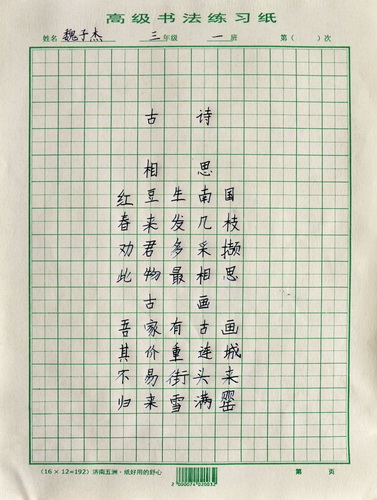 高级书法练习纸
姓名 魏子杰 三 年级 一 班 第( )次
古 诗
相 思
红 豆 生 南 国
春 来 发 几 枝
劝 君 多 采 撷
此 物 最 相 思
古 画
吾 家 有 古 画
其 价 重 连 城
不 易 街 头 来
归 来 雪 满 罂
(16×12=192) 济南五洲·纸好用的舒心
2 000074 020032
第 页